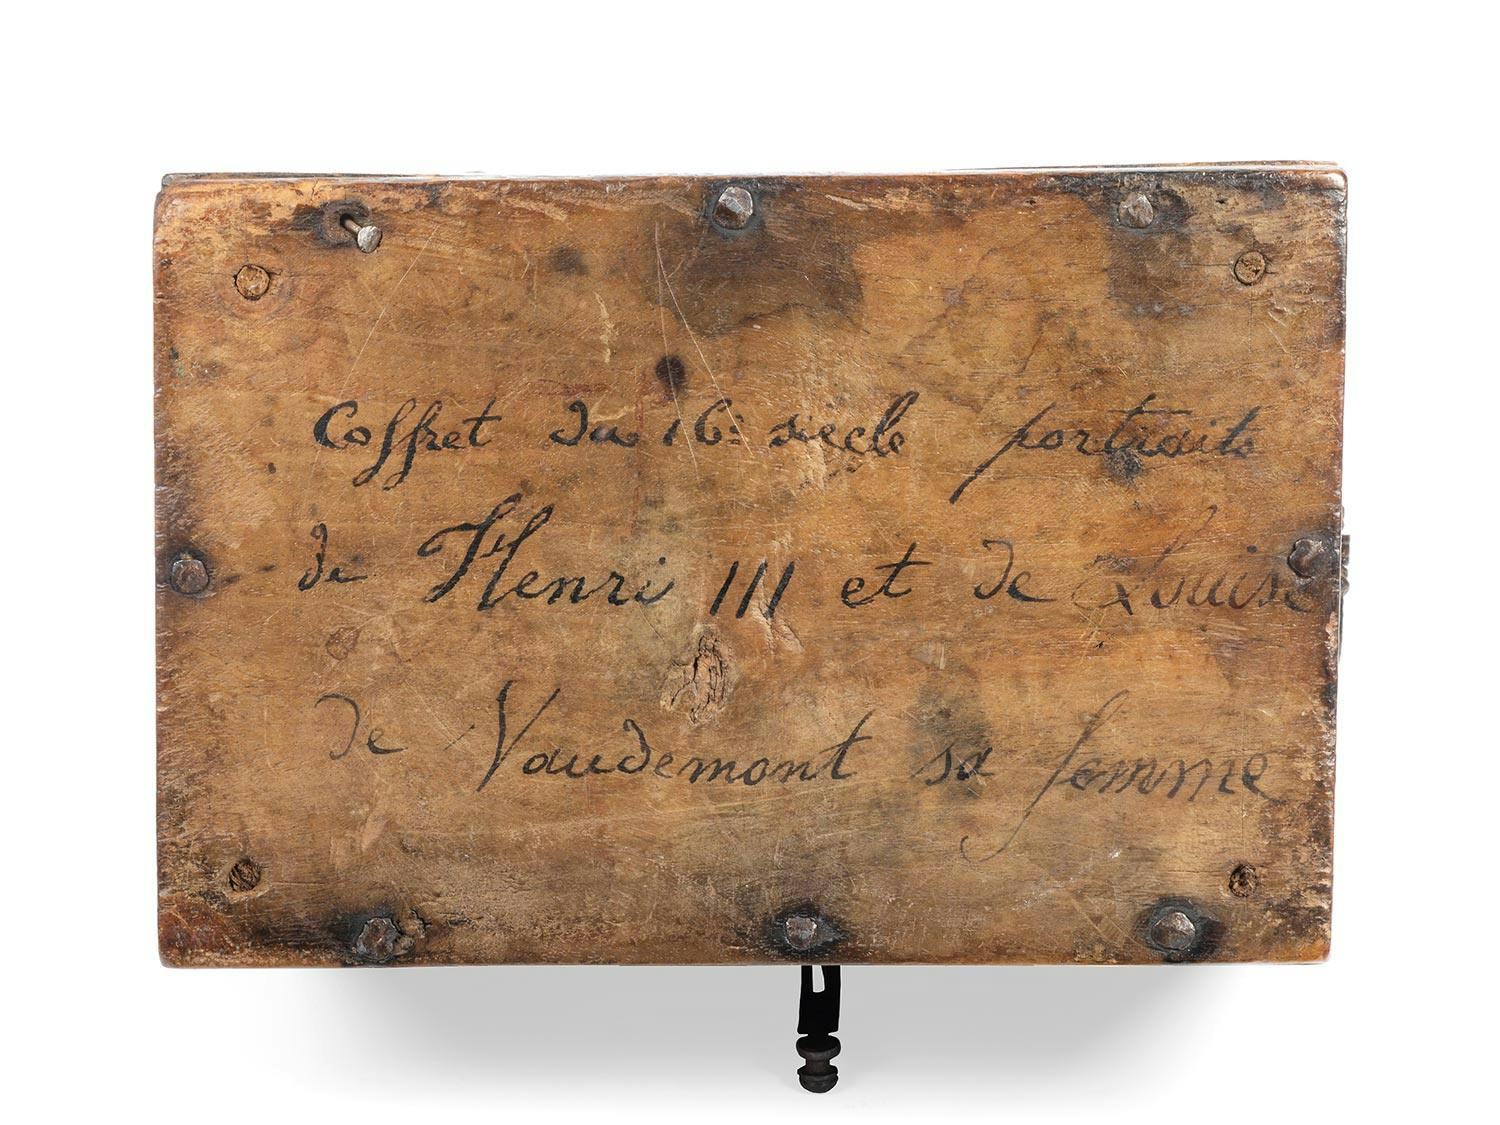 Coffret du 16e siecle portraits
de Henri III et de Louise
de Vaudemont sa femme